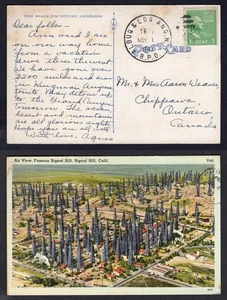 THIS SPACE FOR WRITING MESSAGES
Dear folks—
Ann and I are
on our way home
from a vacation
drive thru the west
We have gone over
3200 miles and are
in Kingman Arizona
tonite. May detour up
to the Grand Canyon
tomorrow. The
desert and mountains
are all glorious sights
Hope you are all well.
With love—
POST CARD
& LOS ANG.
NOV 1
R.P.O.
1 CENT
Mr. & Mrs Aaron Weaver
Chippawa
Ontario
Canada
Air View, Famous Signal Hill, Signal Hill, Calif.